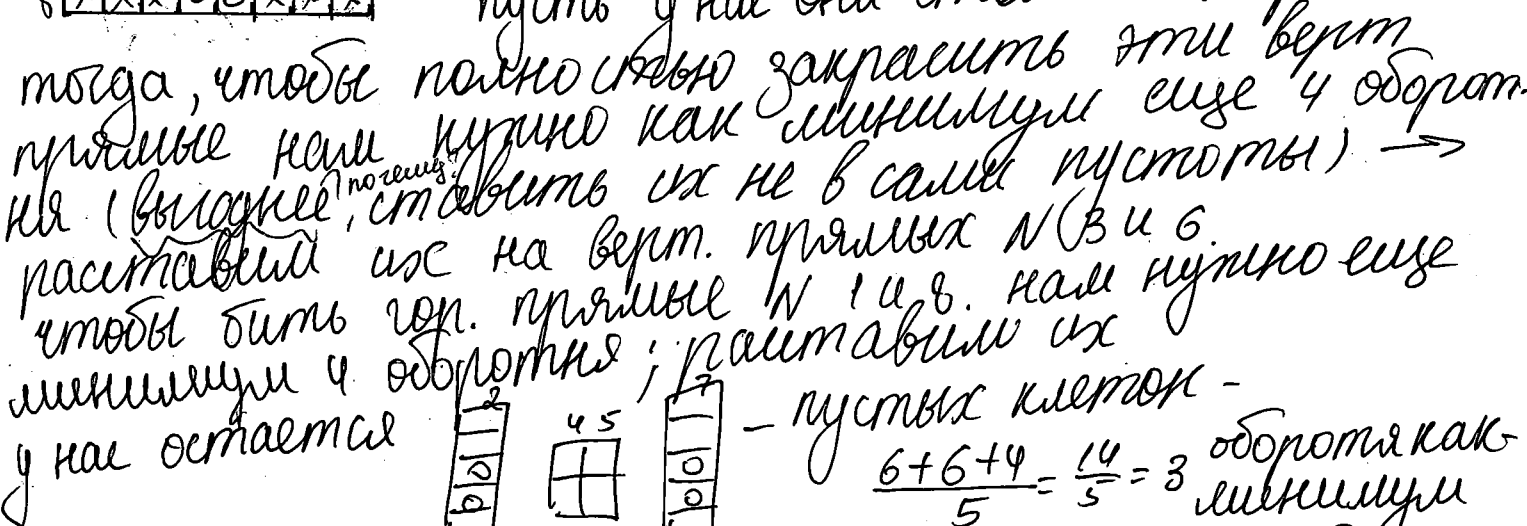 пусть у нас они
тогда, чтобы полностью закрасить эти верт
прямые нам нужно как минимум еще 4 оборот-
ня (выгоднее, почему? ставить их не в сами пустоты) →
расставим их на верт. прямых N 3 и 6.
чтобы бить гор. прямые N 1 и 8. нам нужно еще
минимум 4 оборотня; раставим их
у нас остается 2 4 5 7 - пустых клеток -
6+6+4/5 = 14/5 = 3 оборотя как-
минимум